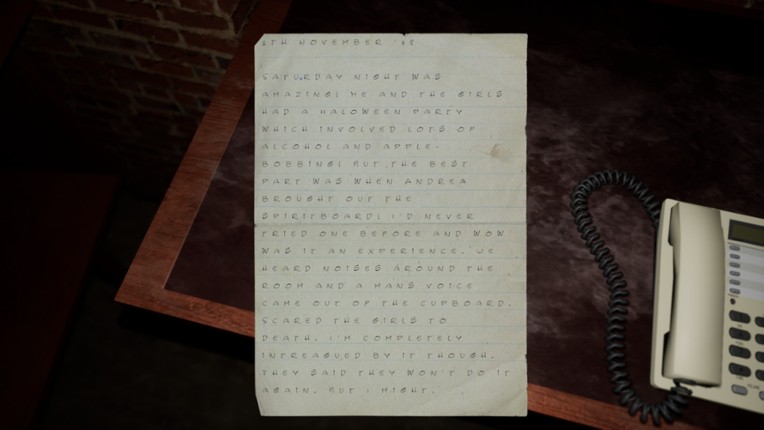 TH NOVEMBER '
SATURDAY NIGHT WAS
AMAZING! ME AND THE GIRLS
HAD A HALOWEEN PARTY
WHICH INVOLVED LOTS OF
ALCOHOL AND APPLE-
BOBBING! BUT THE BEST
PART WAS WHEN ANDREA
BROUGHT OUT THE
SPIRITBOARD! I'D NEVER
TRIED ONE BEFORE AND WOW
WAS IT AN EXPERIENCE. WE
HEARD NOISES AROUND THE
ROOM AND A MANS VOICE
CAME OUT OF THE CUPBOARD.
SCARED THE GIRLS TO
DEATH. I'M COMPLETELY
INTREAGUED BY IT THOUGH.
THEY SAID THEY WON'T DO IT
AGAIN. BUT I MIGHT.